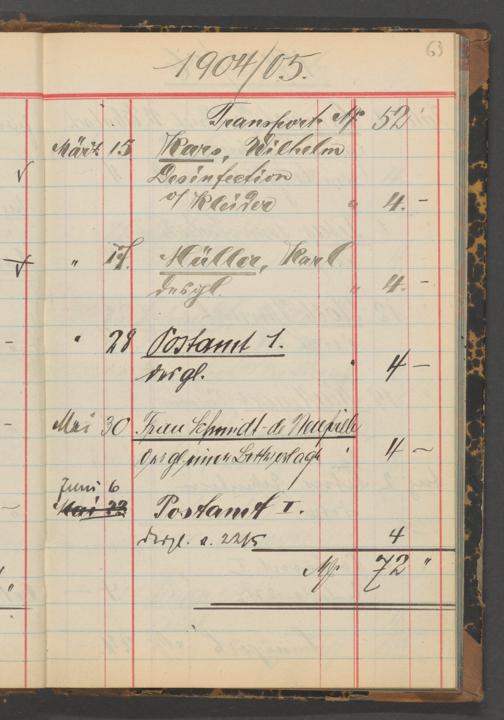 63
1904/05.
Transport M 52
März 15 Kars, Wilhelm
Desinfection
v/ Kleider " 4. –
" 17. Müller, Karl
desgl. " 4. –
" 28 Postamt 1.
desgl. " 4 –
Mai 30 Frau Schmidt-de Neufville
desgl. einer " 4 –
Juni 6
Mai 22 Postamt I.
desgl. 4
M 72 "